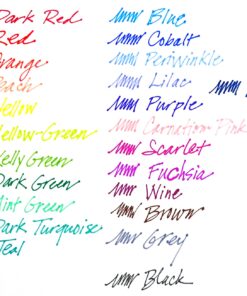 Dark Red
Red
Orange
Peach
Yellow
Yellow-Green
Kelly Green
Dark Green
Mint Green
Dark Turquoise
Teal
Blue
Cobalt
Periwinkle
Lilac
Purple
Carnation Pink
Scarlet
Fuchsia
Wine
Brown
Grey
Black